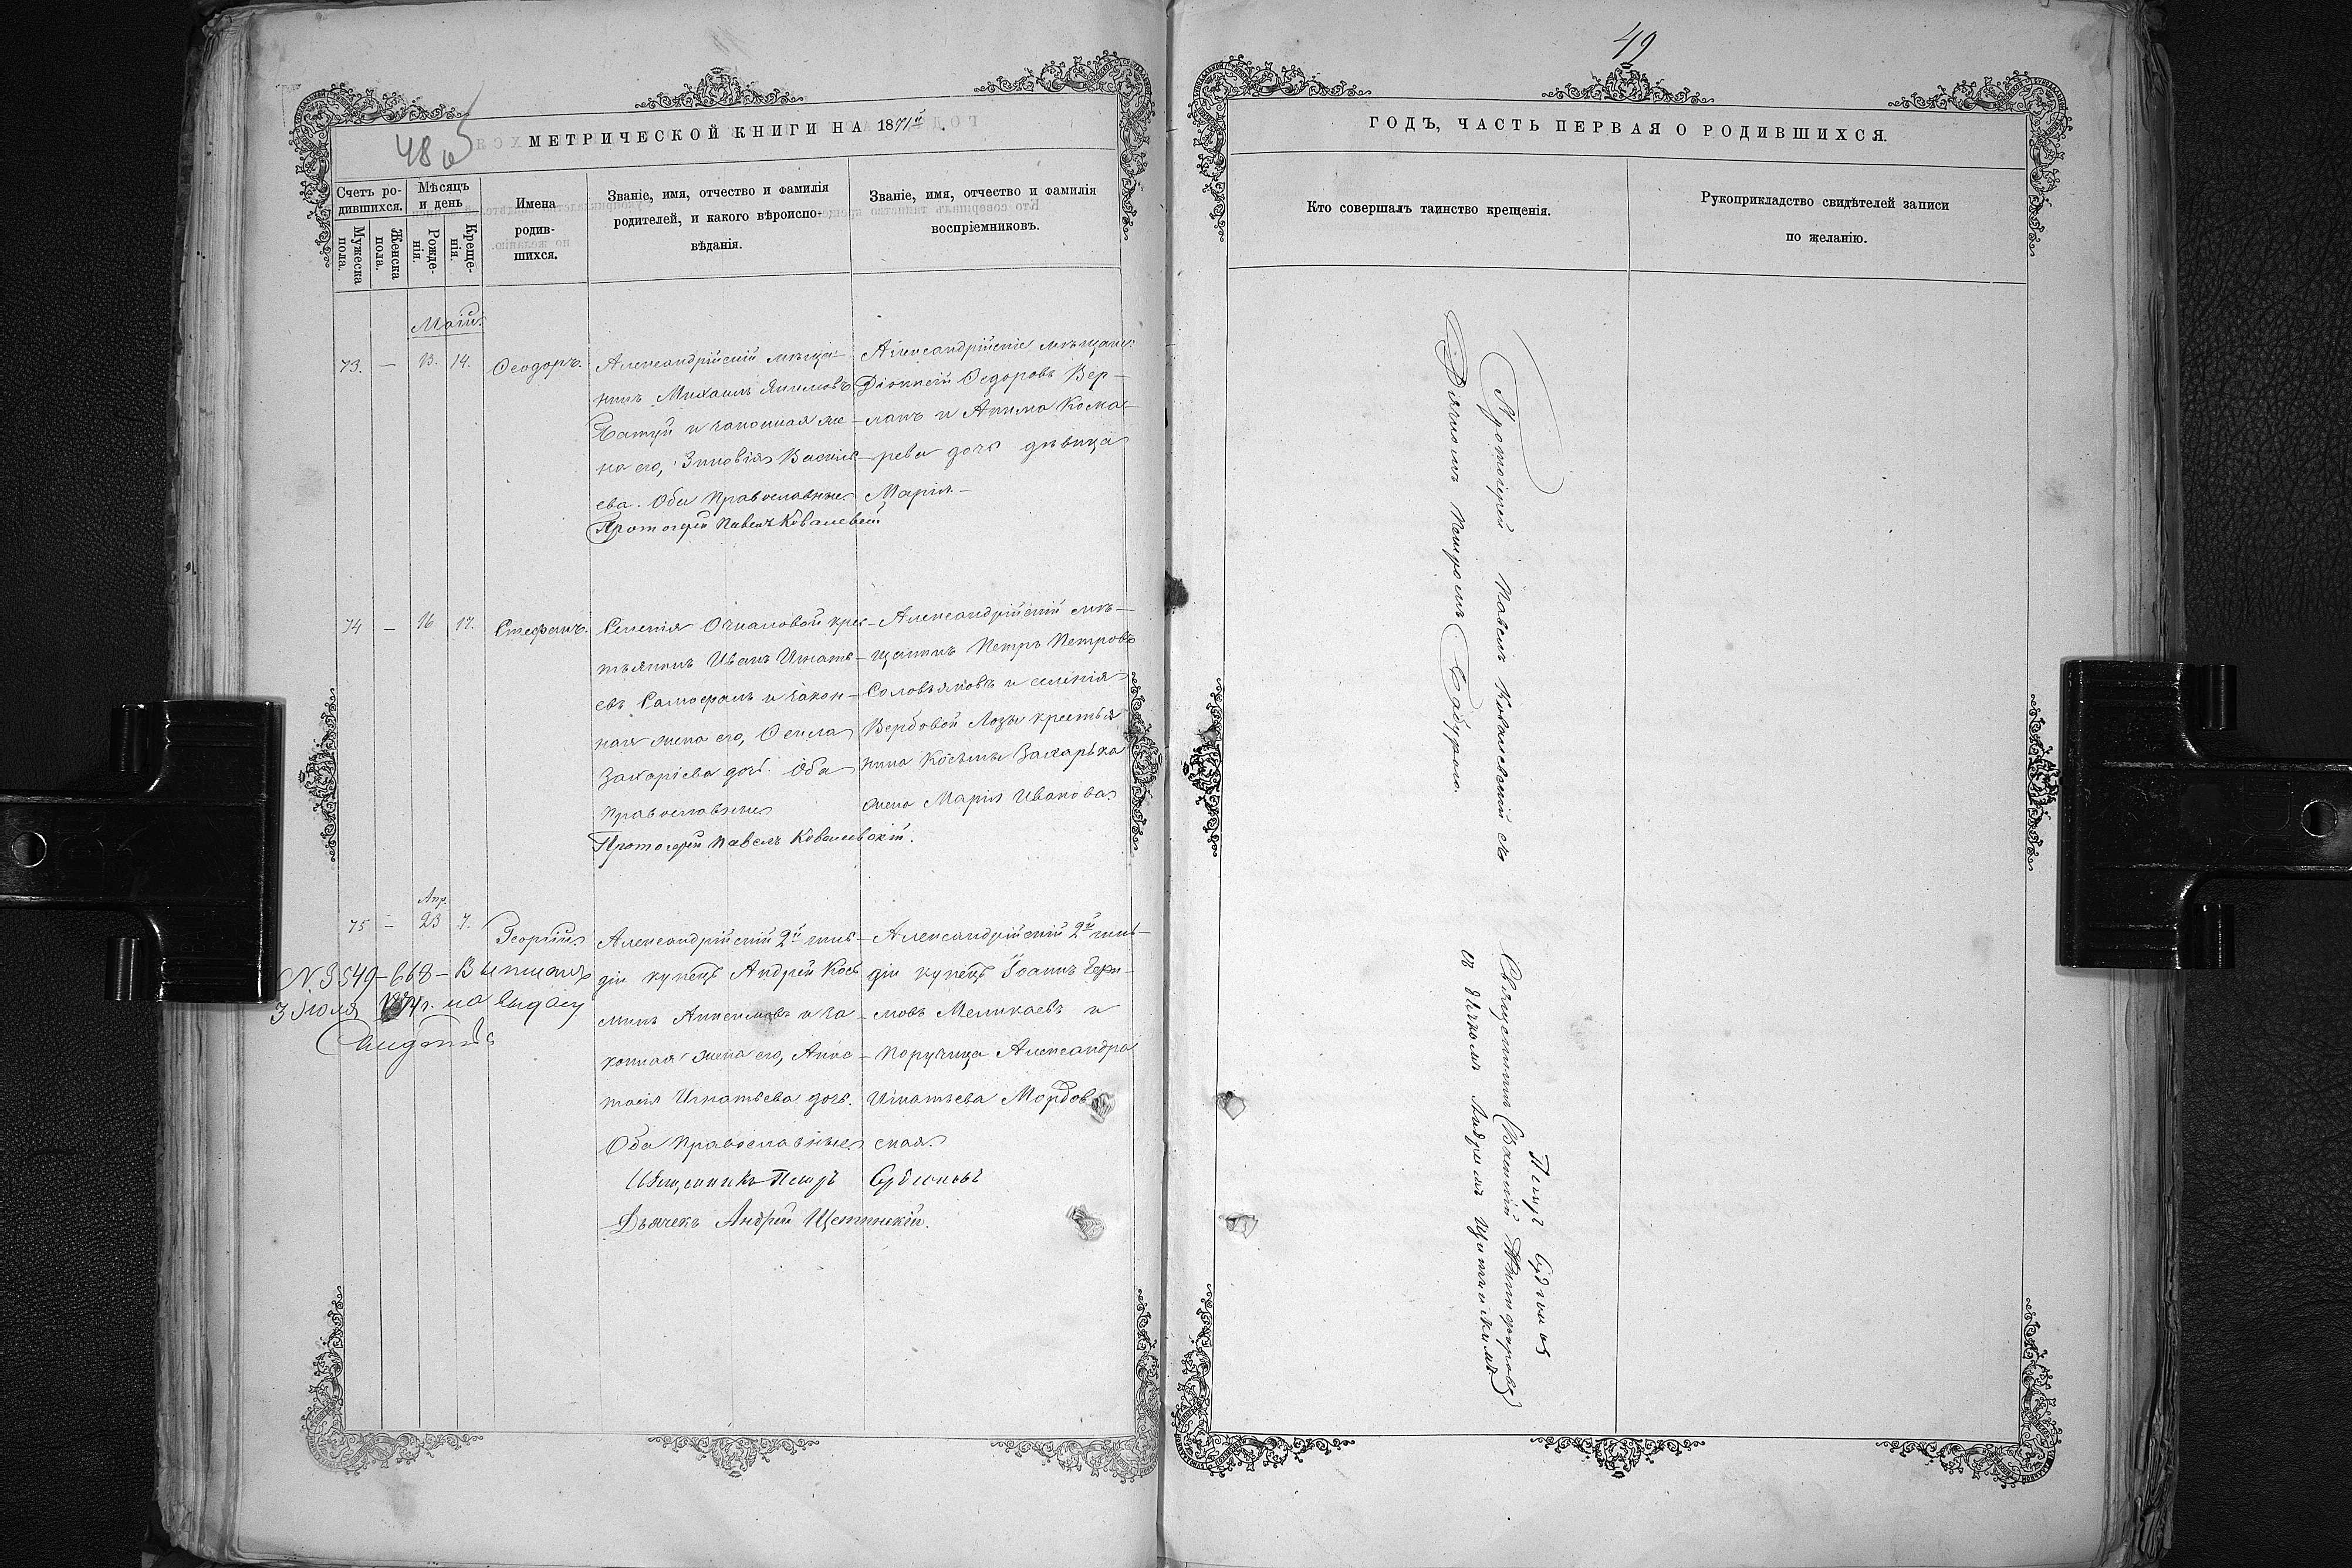 48 об
МЕТРИЧЕСКОЙ КНИГИ НА 1871й
Счетъ ро-
дившихся.
Мужеска пола.
Женска пола.
Мѣсяцъ
и день
Рожде-
нія.
Креще-
нія.
Имена
родив-
шихся.
Званіе, имя, отчество и фамилія
родителей, и какого вѣроиспо-
вѣданія.
Званіе, имя, отчество и фамилія
воспріемниковъ.
Маій.
73. — 13. 14. Ѳеодоръ.
Александрійскій мѣща-
нинъ Михаилъ Якимовъ
и законная же-
на его, Зиновія Василь-
ева. Оба Православные
Протоіерей Павелъ Ковалевскій
Александрійскіе мѣщане:
Діонисій Ѳедоровъ Вер-
ланъ и Акима Кома-
рева дочь дѣвица
Марія —
74 — 16 17. Стефанъ.
Селенія Очкановой крес-
тьянинъ Иванъ Игнать-
евъ Самофалъ и закон-
ная жена его, Ѳекла
Захаріева дочь. Оба
Православные
Протоіерей Павелъ Ковалевскій.
Александрійскій мѣ-
щанинъ Петръ Петровъ
Соловьяновъ и селенія
Вербовой Лозы крестья
нина Косьмы Захарька
жена Марія Иванова
Апр.
75 — 23 7. Георгій
Александрійскій 2й гиль-
діи купецъ Андрей Кось
минъ Анисимовъ и за-
конная жена его, Анас-
тасія Игнатьева дочь.
Оба Православные
Александрійскій 2й гиль-
діи купецъ Іоаннъ Гера-
мовъ Меликаевъ и
Поручица Александра
Игнатьева Мордов
ская.
Священникъ Петръ Судьиновъ
Дьячекъ Андрей Щетинскій.
N. 3549-668- Выписанъ
3 Іюля на выдачу
49
ГОДЪ, ЧАСТЬ ПЕРВАЯ О РОДИВШИХСЯ.
Кто совершалъ таинство крещенія.
Рукоприкладство свидѣтелей записи
по желанію.
Протоіерей Павелъ Ковалевскій съ
Дьячкомъ Петромъ Сабуромъ.
Петръ
Священникъ Василій
съ дьячкомъ Андреемъ Щетинскимъ